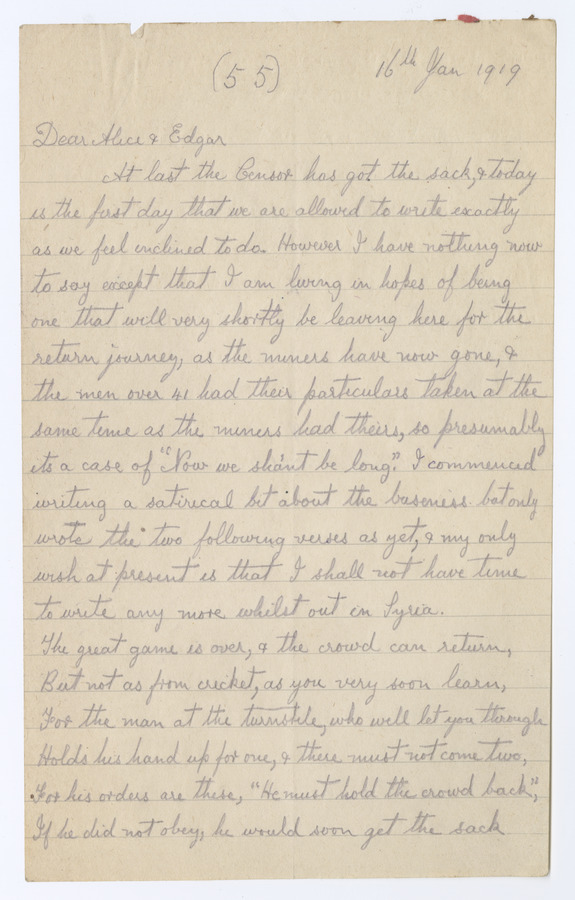 (55)
16th Jan 1919
Dear Alice & Edgar
At last the Censor has got the sack, & today
is the first day that we are allowed to write exactly
as we feel inclined to do. However I have nothing now
to say except that I am living in hopes of being
one that will very shortly be leaving here for the
return journey, as the miners have now gone, &
the men over 41 had their particulars taken at the
same time as the miners had theirs, so presumably
its a case of "Now we shan't be long." I commenced
writing a satirical bit about the business but only
wrote the two following verses as yet, & my only
wish at present is that I shall not have time
to write any more whilst out in Syria.
The great game is over, & the crowd can return,
But not as from cricket, as you very soon learn,
For the man at the turnstile, who will let you through
Holds his hand up for one, & there must not come two,
For his orders are these, "He must hold the crowd back",
If he did not obey, he would soon get the sack